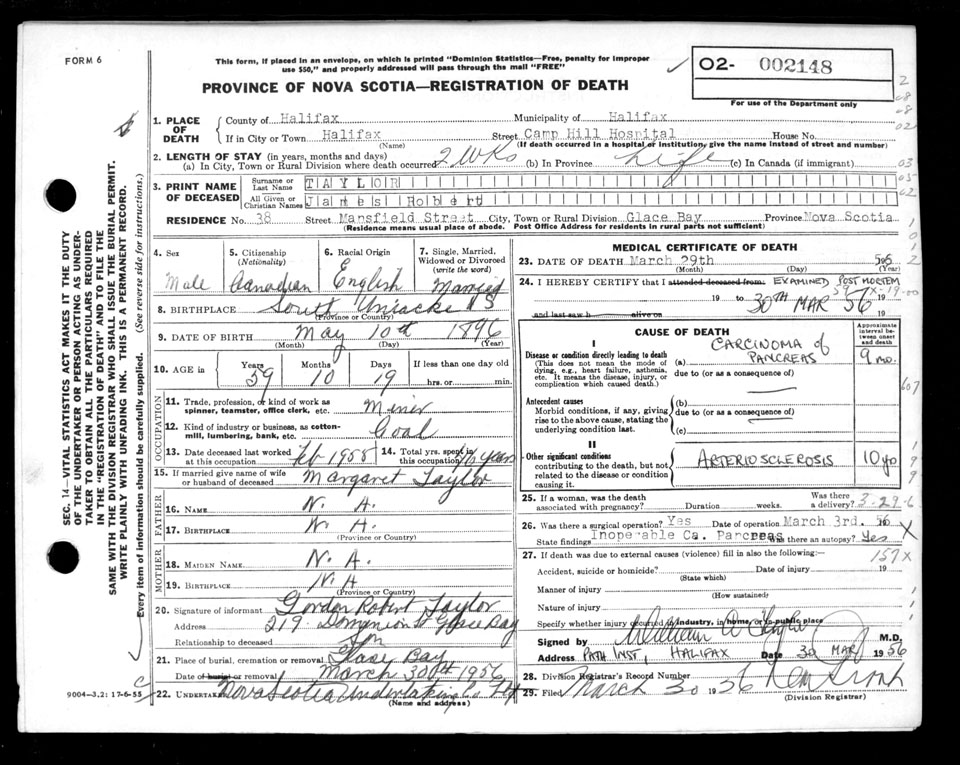 FORM 6
This form, if placed in an envelope, on which is printed "Dominion Statistics—Free, penalty for improper
use $50," and properly addressed will pass through the mail "FREE"
02- 002148
For use of the Department only
PROVINCE OF NOVA SCOTIA—REGISTRATION OF DEATH
1. PLACE OF DEATH
County of Halifax Municipality of Halifax
If in City or Town Halifax Street Camp Hill Hospital House No.
(Name) (If death occurred in a hospital or institution, give the name instead of street and number)
2. LENGTH OF STAY (in years, months and days)
(a) In City, Town or Rural Division where death occurred 2 Wks (b) In Province Life (c) In Canada (if immigrant)
3. PRINT NAME OF DECEASED
Surname or Last Name TAYLOR
All Given or Christian Names James Robert
RESIDENCE No. 38 Street Mansfield Street City, Town or Rural Division Glace Bay Province Nova Scotia
(Residence means usual place of abode. Post Office Address for residents in rural parts not sufficient)
4. Sex Male
5. Citizenship (Nationality) Canadian
6. Racial Origin English
7. Single, Married, Widowed or Divorced (write the word) Married
8. BIRTHPLACE South Uniacke N S
(Province or Country)
9. DATE OF BIRTH May 10th 1896
(Month) (Day) (Year)
10. AGE in Years 59 Months 10 Days 19 If less than one day old hrs. or min.
OCCUPATION
11. Trade, profession, or kind of work as spinner, teamster, office clerk, etc. Miner
12. Kind of industry or business, as cotton-mill, lumbering, bank, etc. Coal
13. Date deceased last worked at this occupation Feb 1955
14. Total yrs. spent in this occupation years
15. If married give name of wife or husband of deceased Margaret Taylor
FATHER
16. NAME N. A.
17. BIRTHPLACE N. A.
(Province or Country)
MOTHER
18. MAIDEN NAME N. A.
19. BIRTHPLACE N. A
(Province or Country)
20. Signature of informant Gordon Robert Taylor
Address 219 Dominion St Glace Bay
Relationship to deceased Son
21. Place of burial, cremation or removal Glace Bay
Date of burial or removal March 30th 1956
22. UNDERTAKER Nova Scotia Undertaking Co Hfx
(Name and address)
MEDICAL CERTIFICATE OF DEATH
23. DATE OF DEATH March 29th 56
(Month) (Day)
24. I HEREBY CERTIFY that I attended deceased from: EXAMINED POST MORTEM
19 to 30TH MAR 56 19
and last saw h alive on 19
CAUSE OF DEATH
Approximate interval between onset and death
I
Disease or condition directly leading to death
(This does not mean the mode of dying, e.g., heart failure, asthenia, etc. It means the disease, injury, or complication which caused death.)
(a) CARCINOMA of PANCREAS 9 mo.
due to (or as a consequence of)
Antecedent causes
Morbid conditions, if any, giving rise to the above cause, stating the underlying condition last.
(b)
due to (or as a consequence of)
(c)
II
Other significant conditions
contributing to the death, but not related to the disease or condition causing it.
ARTERIOSCLEROSIS 10 yo
25. If a woman, was the death associated with pregnancy? Duration weeks. Was there a delivery? 3-29-6
26. Was there a surgical operation? Yes Date of operation March 3rd. 56
State findings Inoperable Ca. Pancreas Was there an autopsy? Yes X
27. If death was due to external causes (violence) fill in also the following:— 157 X
Accident, suicide or homicide? Date of injury 19
(State which)
Manner of injury
(How sustained)
Nature of injury
Specify whether injury occurred in industry, in home, or in public place
Signed by William A M.D.
Address PATH INST, HALIFAX Date 30 MAR 1956
28. Division Registrar's Record Number
29. Filed March 30 1956
(Division Registrar)
SEC. 14—VITAL STATISTICS ACT MAKES IT THE DUTY
OF THE UNDERTAKER OR PERSON ACTING AS UNDER-
TAKER TO OBTAIN ALL THE PARTICULARS REQUIRED
IN THE "REGISTRATION OF DEATH" AND TO FILE THE
SAME WITH THE DIVISION REGISTRAR WHO SHALL ISSUE THE BURIAL PERMIT.
WRITE PLAINLY WITH UNFADING INK. THIS IS A PERMANENT RECORD.
Every item of information should be carefully supplied. (See reverse side for instructions.)
9004—3.2: 17-6-55